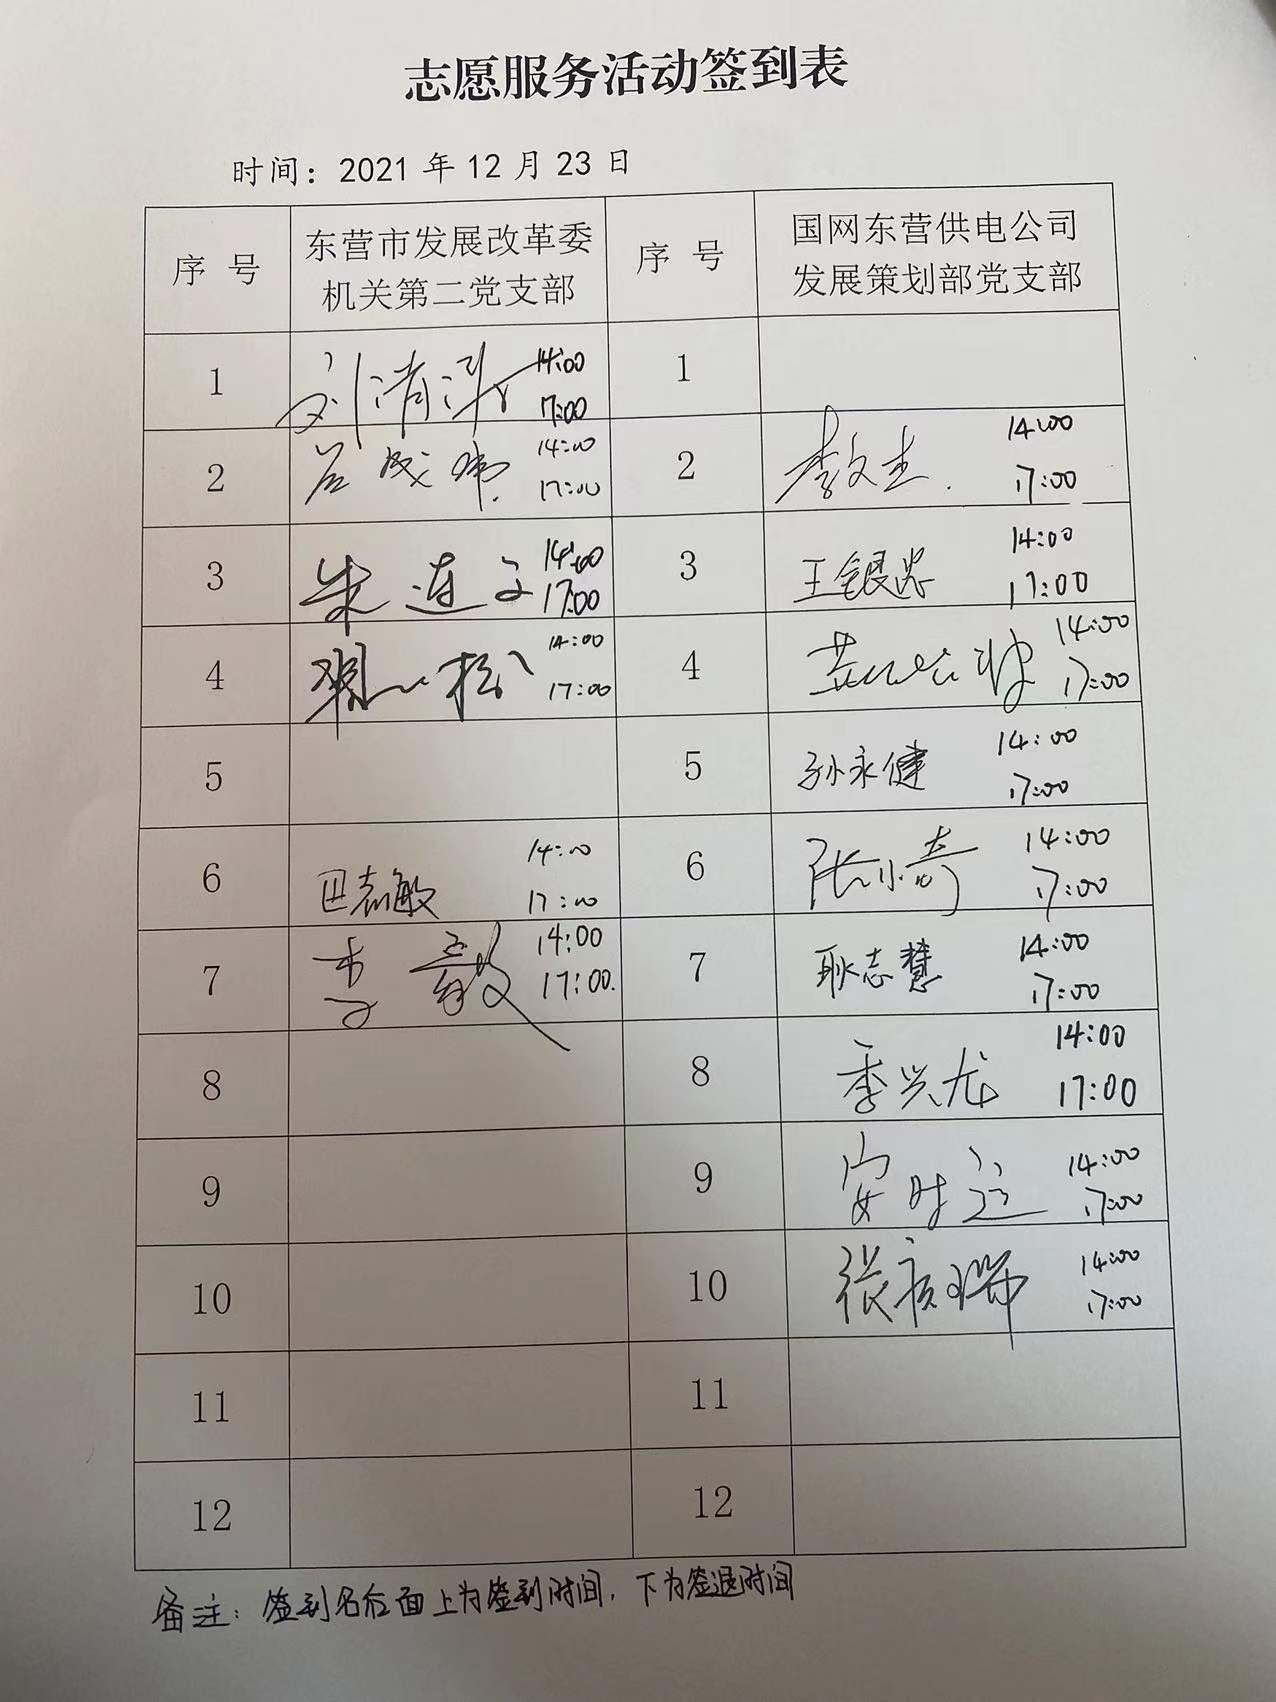 志愿服务活动签到表
时间：2021 年 12 月 23 日
序 号 东营市发展改革委 序 号 国网东营供电公司
机关第二党支部 发展策划部党支部
1 刘清 14:00 1
17:00
2 吕成 14:00 2 李文圭 14:00
17:00 17:00
3 朱连 14:00 3 王银忠 14:00
17:00 17:00
4 松 14:00 4 14:00
17:00 17:00
5 5 孙永健 14:00
17:00
6 巴志敏 14:00 6 张小奇 14:00
17:00 17:00
7 李毅 14:00 7 耿志慧 14:00
17:00. 17:00
8 8 季兴龙 14:00
17:00
9 9 安时 14:00
17:00
10 10 张瑞 14:00
17:00
11 11
12 12
备注：签到名后面上为签到时间，下为签退时间